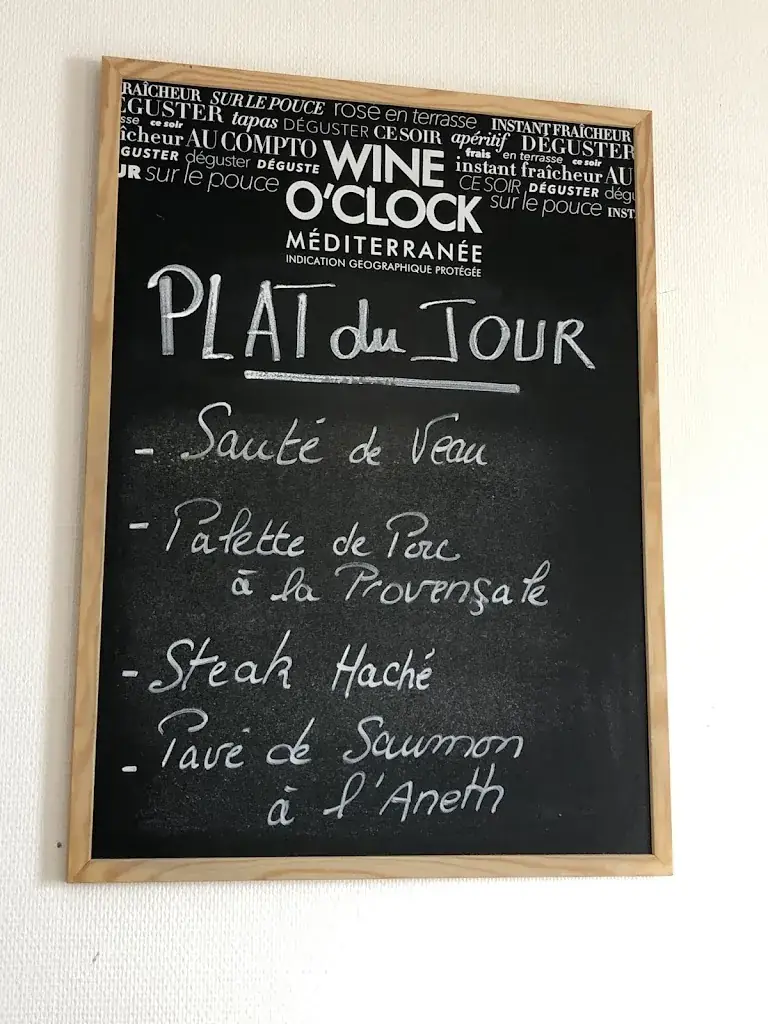 RAÎCHEUR SUR LE POUCE rosé en terrasse INSTANT FRAÎCHEUR
ÉGUSTER tapas DÉGUSTER CE SOIR apéritif DÉGUSTER
sse ce soir frais en terrasse ce soir
îcheur AU COMPTO WINE instant fraîcheur AU
GUSTER déguster DÉGUSTE CE SOIR DÉGUSTER dégu
UR sur le pouce O'CLOCK sur le pouce INST
MÉDITERRANÉE
INDICATION GÉOGRAPHIQUE PROTÉGÉE
PLAT du JOUR
- Sauté de Veau
- Palette de Porc
à la Provençale
- Steak Haché
- Pavé de Saumon
à l'Aneth